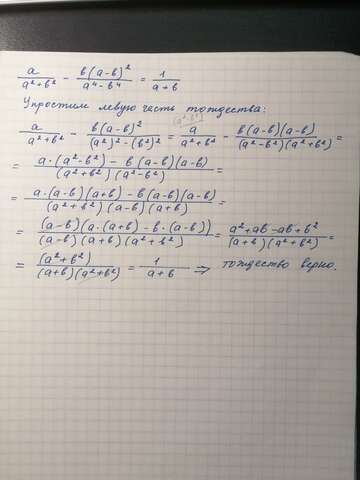 a/(a²+b²) - b(a-b)²/(a⁴-b⁴) = 1/(a+b)
Упростим левую часть тождества:
(a²-b²)
a/(a²+b²) - b(a-b)²/((a²)²-(b²)²) = a/(a²+b²) - b(a-b)(a-b)/((a²-b²)(a²+b²)) =
= (a·(a²-b²) - b(a-b)(a-b))/((a²+b²)(a²-b²)) =
= (a·(a-b)(a+b) - b(a-b)(a-b))/((a²+b²)(a-b)(a+b)) =
= ((a-b)(a·(a+b) - b·(a-b)))/((a-b)(a+b)(a²+b²)) = (a²+ab-ab+b²)/((a+b)(a²+b²)) =
= (a²+b²)/((a+b)(a²+b²)) = 1/(a+b) ⇒ тождество верно.